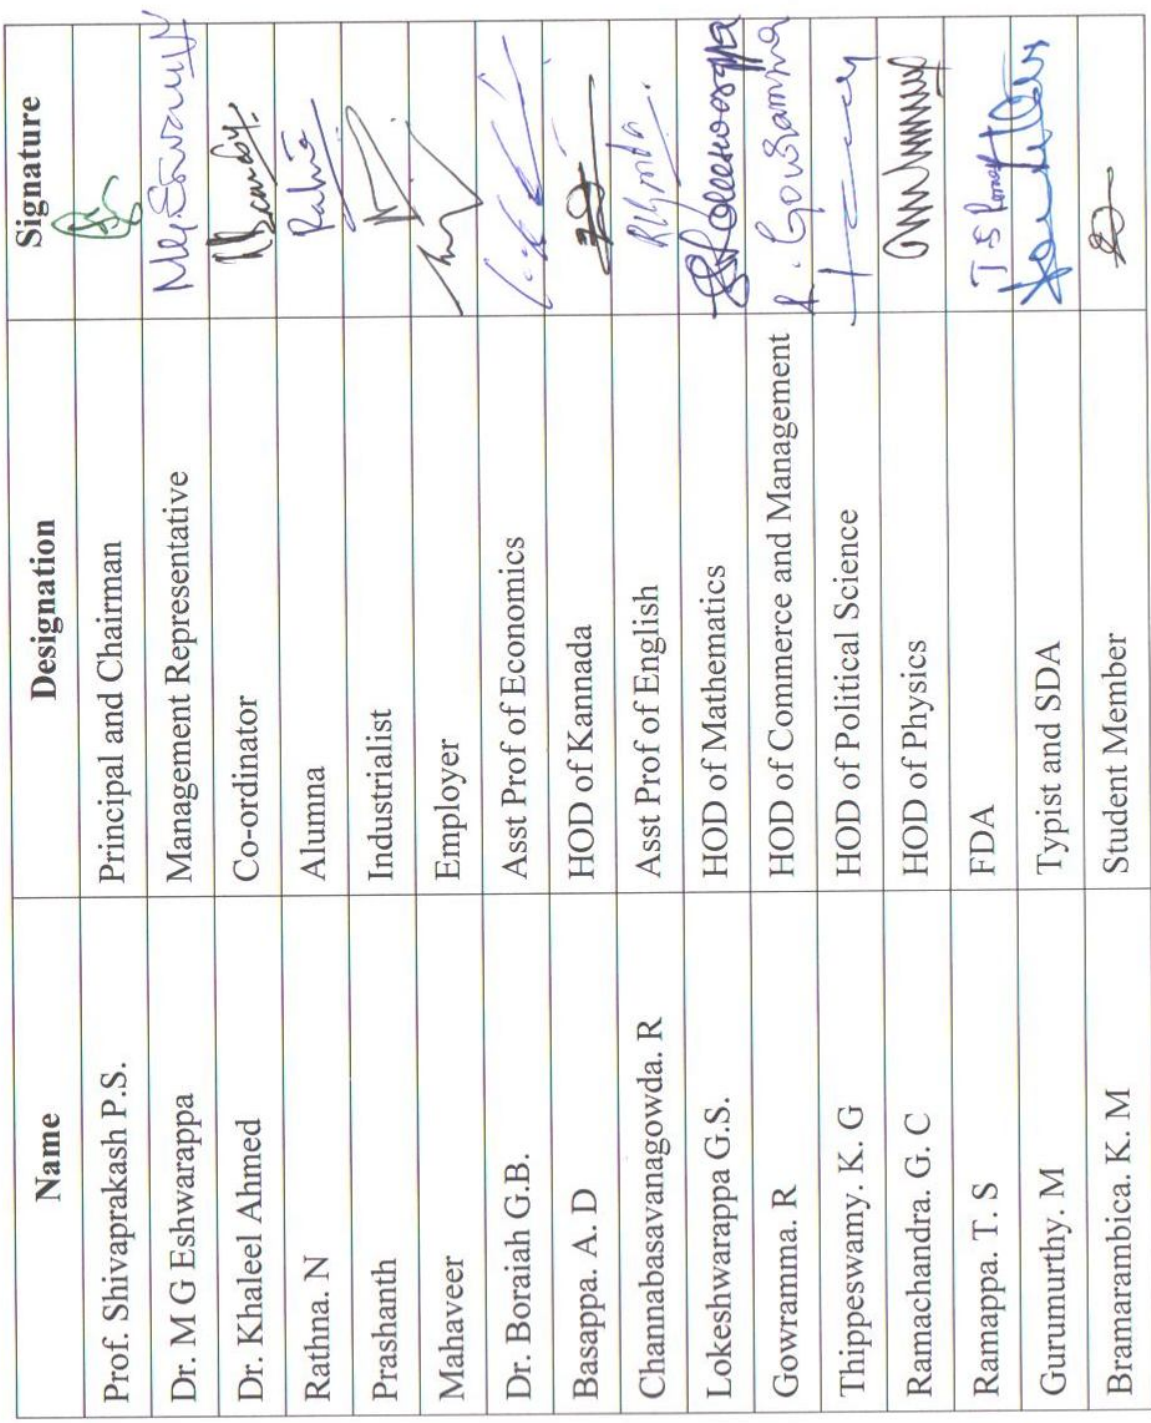 Name Designation Signature
Prof. Shivaprakash P.S. Principal and Chairman
Dr. M G Eshwarappa Management Representative
Dr. Khaleel Ahmed Co-ordinator
Rathna. N Alumna
Prashanth Industrialist
Mahaveer Employer
Dr. Boraiah G.B. Asst Prof of Economics
Basappa. A. D HOD of Kannada
Channabasavanagowda. R Asst Prof of English
Lokeshwarappa G.S. HOD of Mathematics
Gowramma. R HOD of Commerce and Management
Thippeswamy. K. G HOD of Political Science
Ramachandra. G. C HOD of Physics
Ramappa. T. S FDA
Gurumurthy. M Typist and SDA
Bramarambica. K. M Student Member